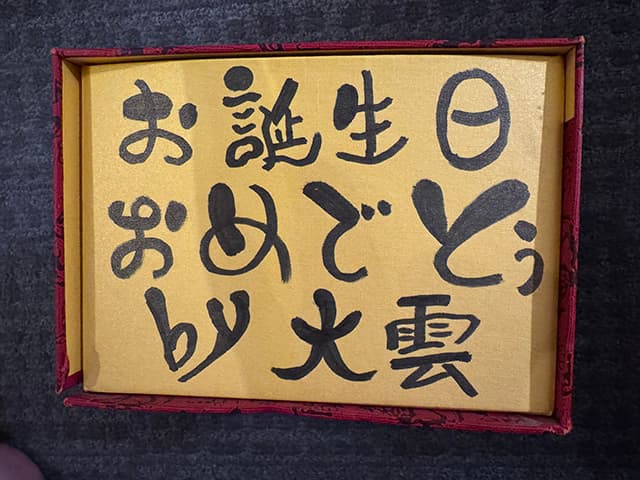 お誕生日
おめでとう
by 大雲